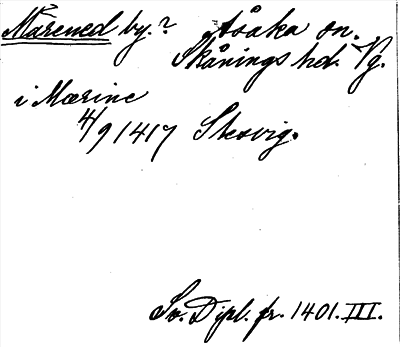 Marened by.? Asåka sn.
Skånings hd. Vg.
i Mærine
4/9 1417 Skovig.
Sv. Dipl. fr. 1401. III.